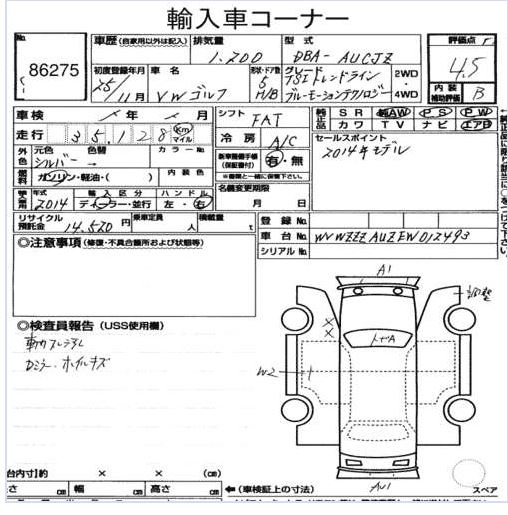 輸入車コーナー
No.
86275
車歴 (自家用以外は記入)
排気量
1.200
型式
DBA-AUCJZ
評価点
4.5
内装
補助評価
B
初度登録年月
25/11月
車名
VWゴルフ
形・ドア数
5
H/B
グレード
TSIトレンドライン
ブルーモーションテクノロジー
2WD・
4WD
車検
年 月
シフト
FAT
純正品
SR 純AW PS PW
カワ TV ナビ エアB
走行
35,128
km
マイル
冷房
A/C
セールスポイント
2014年モデル
外色
元色
シルバー
色替
→
カラーNo.
新車整備手帳
(保証書付)
有・無
※書類と一緒に保管して下さい。
燃料
ガソリン・軽油・( )
名義変更期限
月 日
年式
2014
輸入区分
ディーラー・並行
ハンドル
左・右
リサイクル
預託金
14,520円
乗車定員
人
積載量
t
登録No.
車台No.
WVWZZZAUZEW012493
シリアルNo.
◎注意事項 (修復・不具合箇所および状態等)
◎検査員報告 (USS使用欄)
Dミラー・ホイルキズ
A1
W2
台内寸)約 × × (cm)
さ cm 幅 cm 高さ cm
←(車検証上の寸法)
スペア